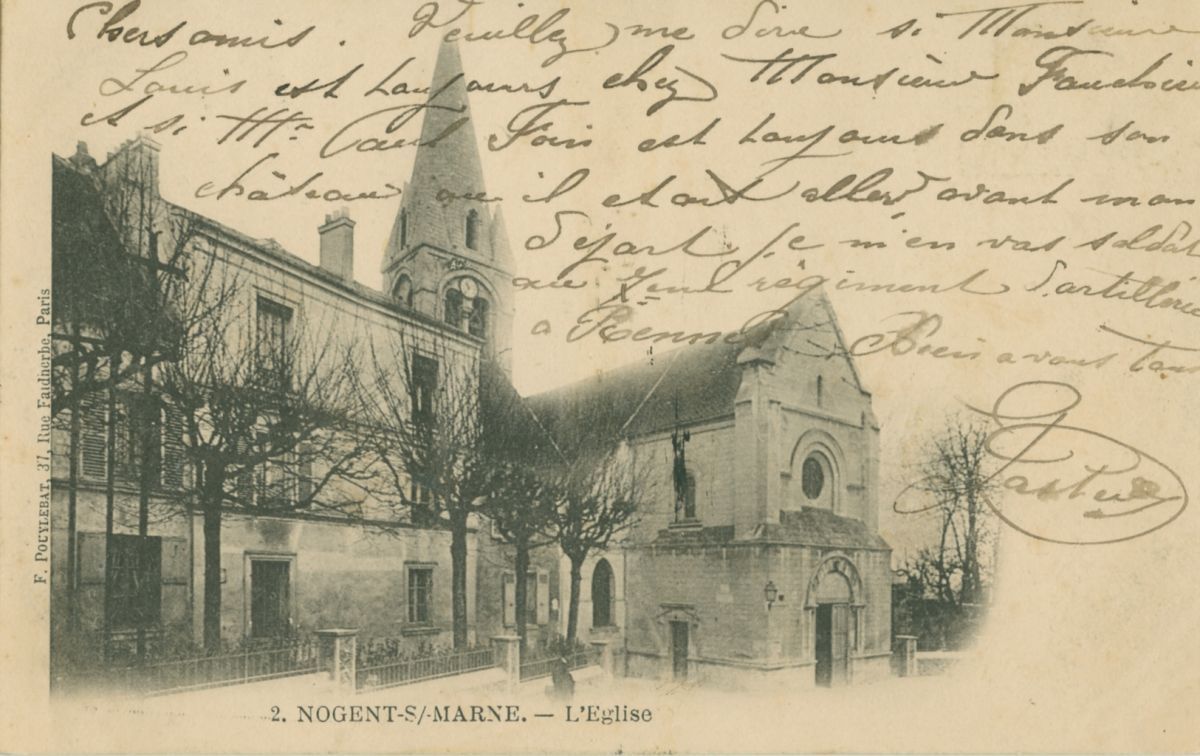 Chers amis. Veuillez me dire si Monsieur
Louis est toujours chez Monsieur
et si Mr Paul est toujours dans son
château ou il etait aller avant mon
départ. Je m'en vas soldat
au 7eme régiment d'artillerie
a Rennes Bien avous tous
F. POUYLEBAT, 37, Rue Faidherbe, Paris
2. NOGENT-S/-MARNE. — L'Eglise